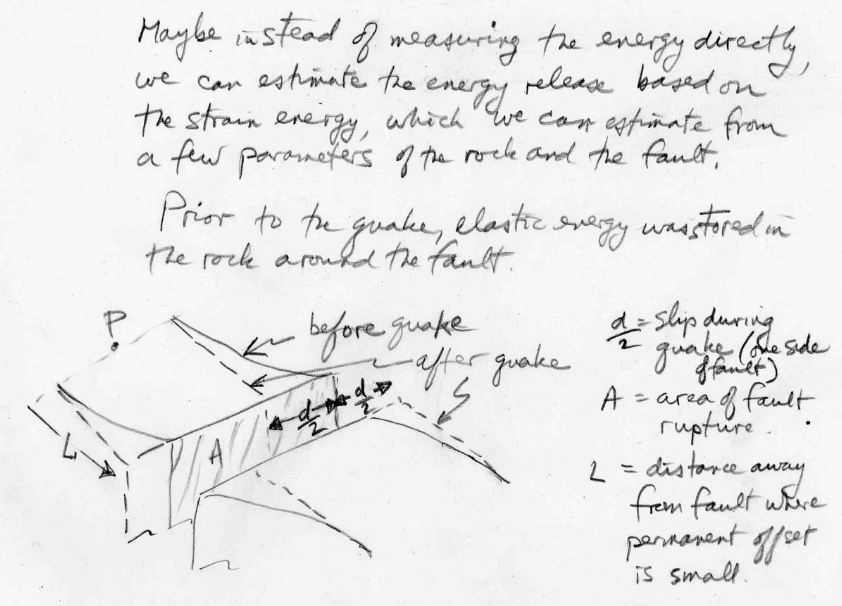 Maybe instead of measuring the energy directly,
we can estimate the energy release based on
the strain energy, which we can estimate from
a few parameters of the rock and the fault.
Prior to the quake, elastic energy was stored in
the rock around the fault.
P
before quake
after quake
d/2
d/2
A
L
d/2 = slip during
quake (one side
of fault)
A = area of fault
rupture.
L = distance away
from fault where
permanent offset
is small.